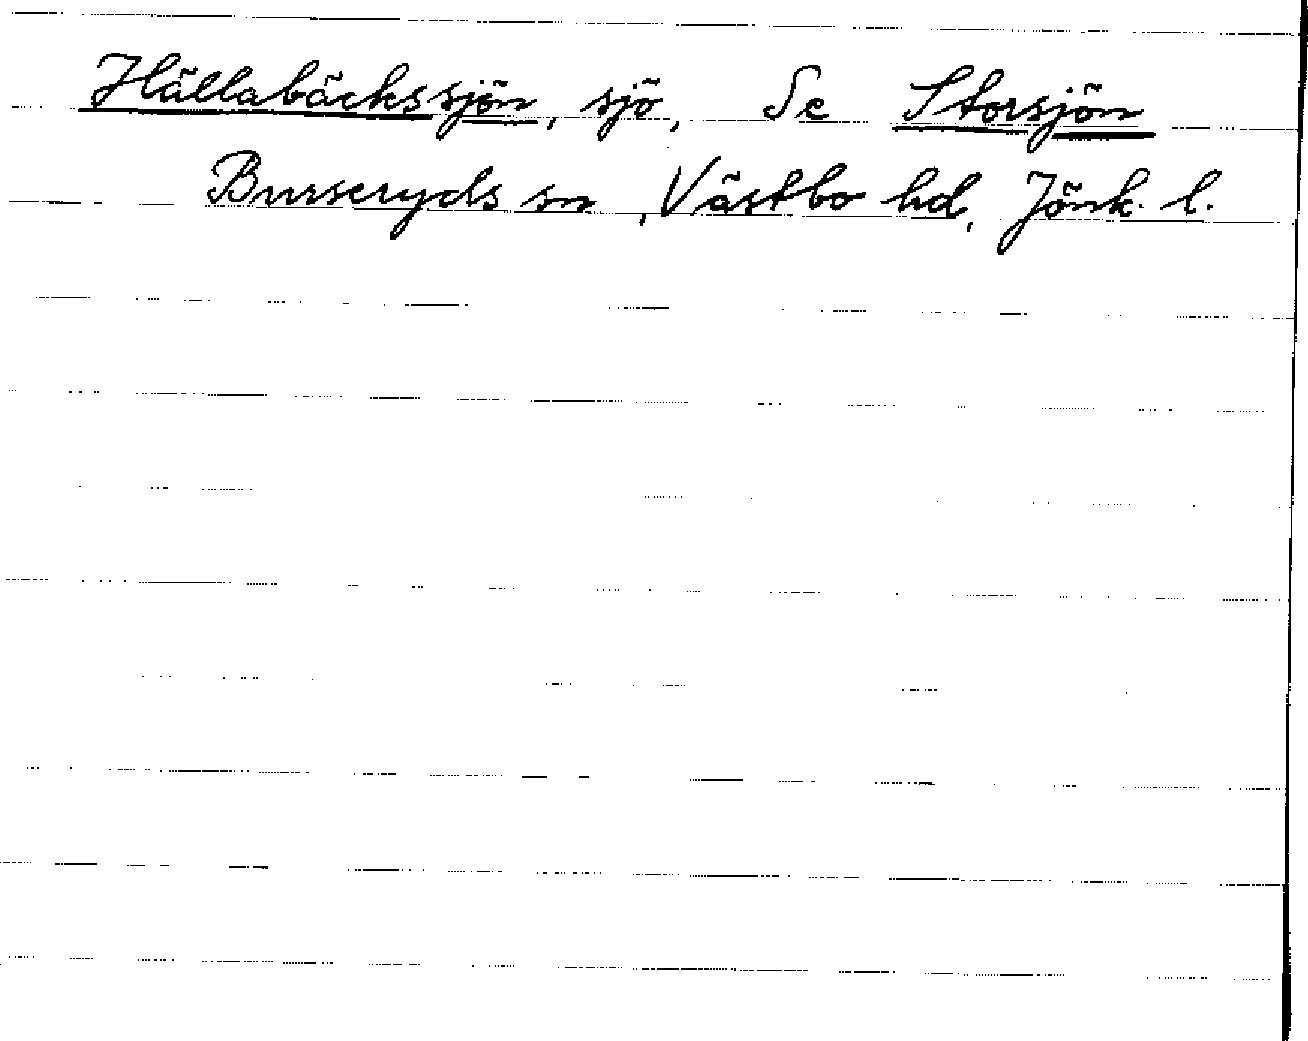 Hällabäckssjön, sjö, Se Storsjön
Burseryds sn, Västbo hd, Jönk. l.